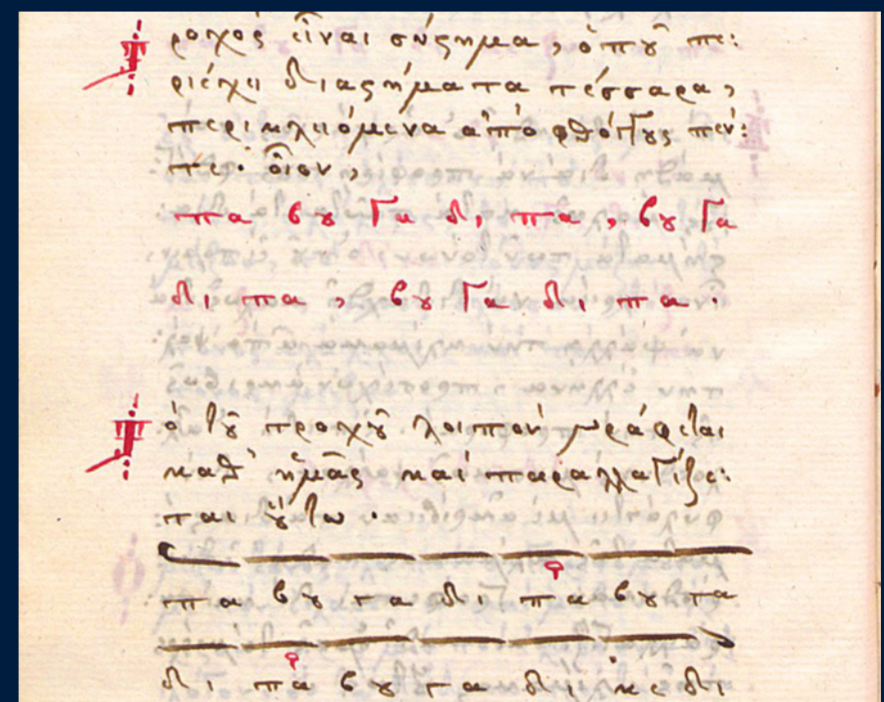 ροχὸς εἶναι σύστημα, ὁποῦ πε:
ριέχει διαστήματα τέσσαρα,
περικλειόμενα ἀπὸ φθόγγους πέν:
τε· οἷον,
πα βου Γα δι πα, βου Γα
δι πα, βου Γα δι πα.
ὸ τοῦ τροχοῦ λοιπὸν γράφεται
καθ' ἡμᾶς καὶ παραλλαγίζε:
ται οὕτω.
πα βου γα δι πα βου γα
δι πα βου γα δι κε δι